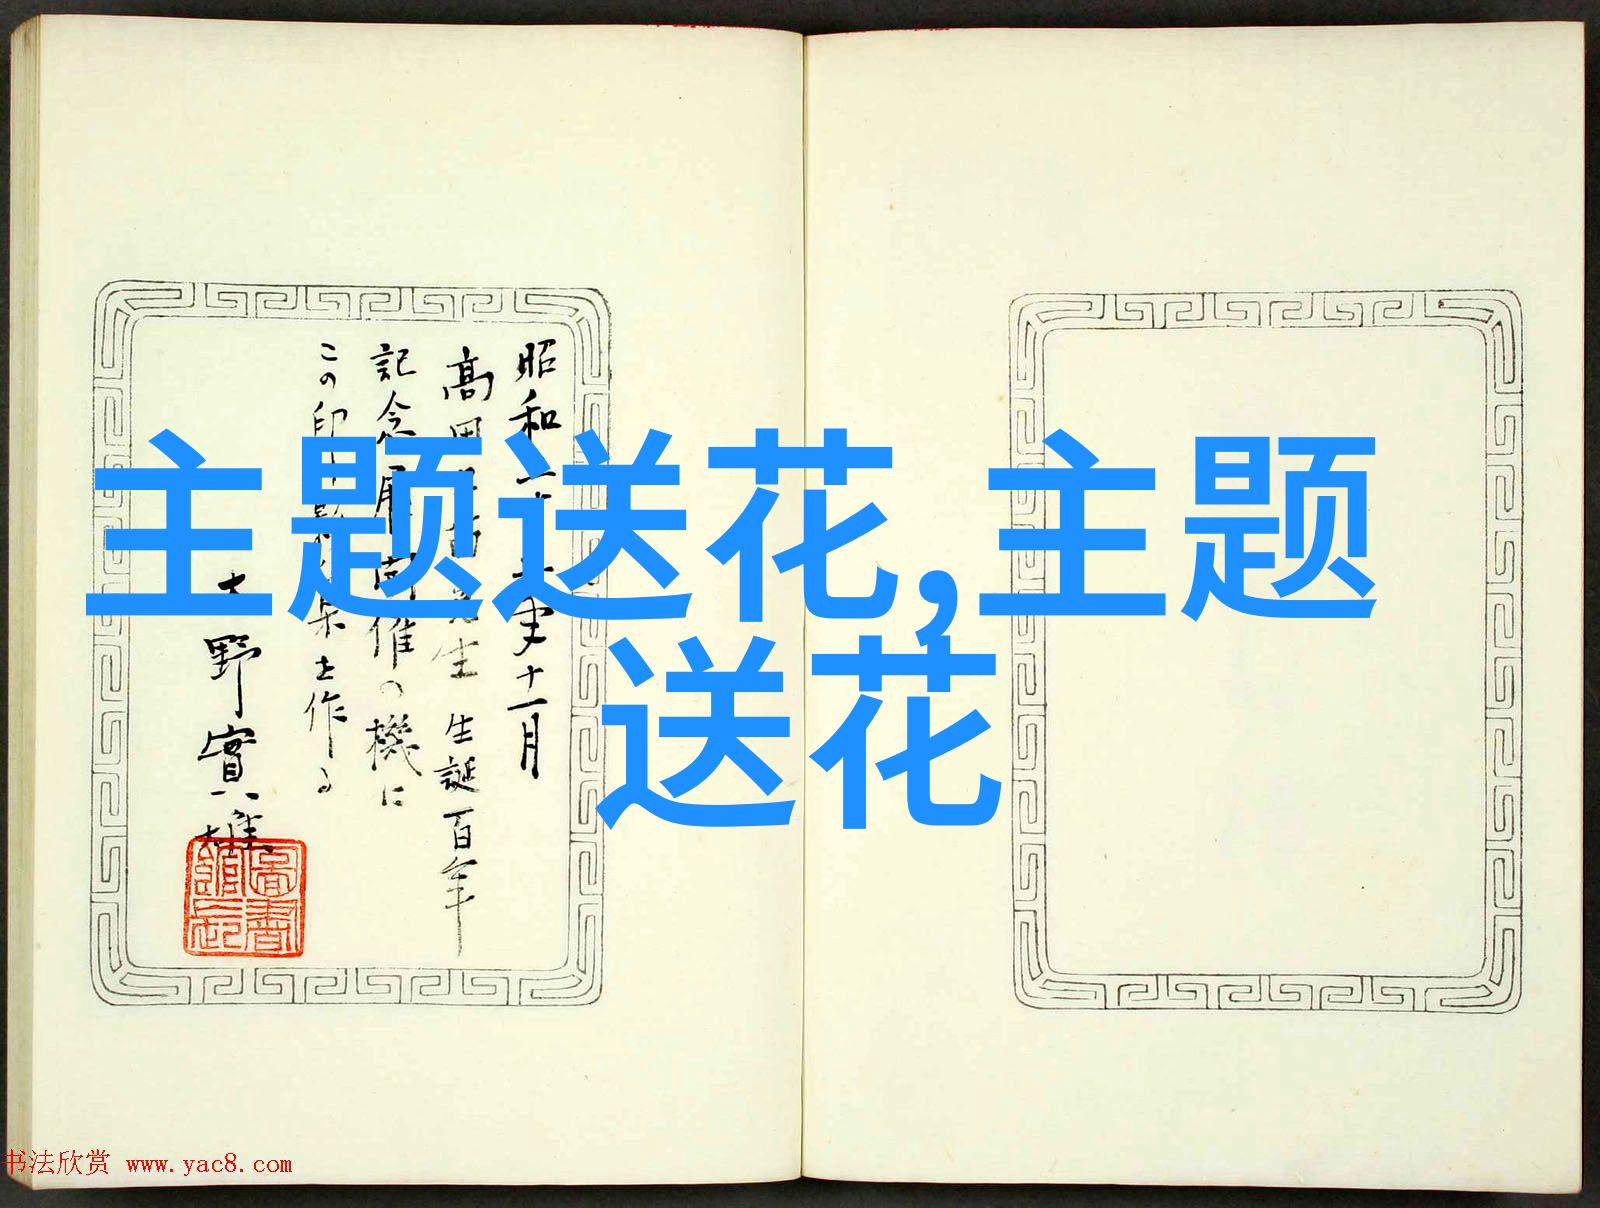 主题送花,主题
送花
昭和
十一月
高田
先生 生誕百年
記念展
開催の機に
この印
作る
野實雄
書法欣赏 www.yac8.com